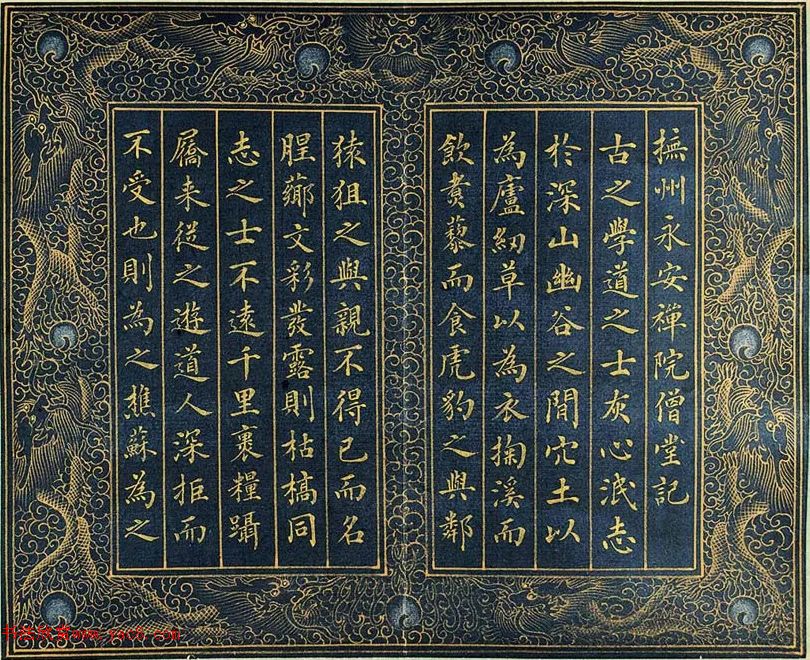 撫州永安禪院僧堂記
古之學道之士灰心泯志
於深山幽谷之間穴土以
為廬紉草以為衣掬溪而
飲煑藜而食虎豹之與鄰
猿狙之與親不得已而名
腥薌文彩發露則枯槁同
志之士不遠千里裹糧躡
屩来從之遊道人深拒而
不受也則為之樵蘇為之
书法欣赏www.yac8.com